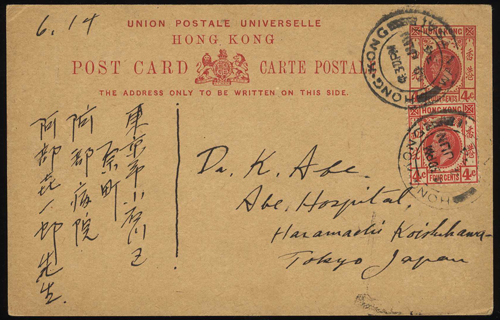 6.14
UNION POSTALE UNIVERSELLE
HONG KONG
POST CARD
CARTE POSTALE
THE ADDRESS ONLY TO BE WRITTEN ON THIS SIDE.
HONG KONG
香港
4c
FOUR CENTS
4c
HONG KONG
4c
FOUR CENTS
4c
HONG-KONG
HONG
Dr. K. Abe.
Abe Hospital,
Haramachi Koishikawa-
Tokyo Japan
東京市小石川区
原町
阿部病院
阿部喜一郎先生